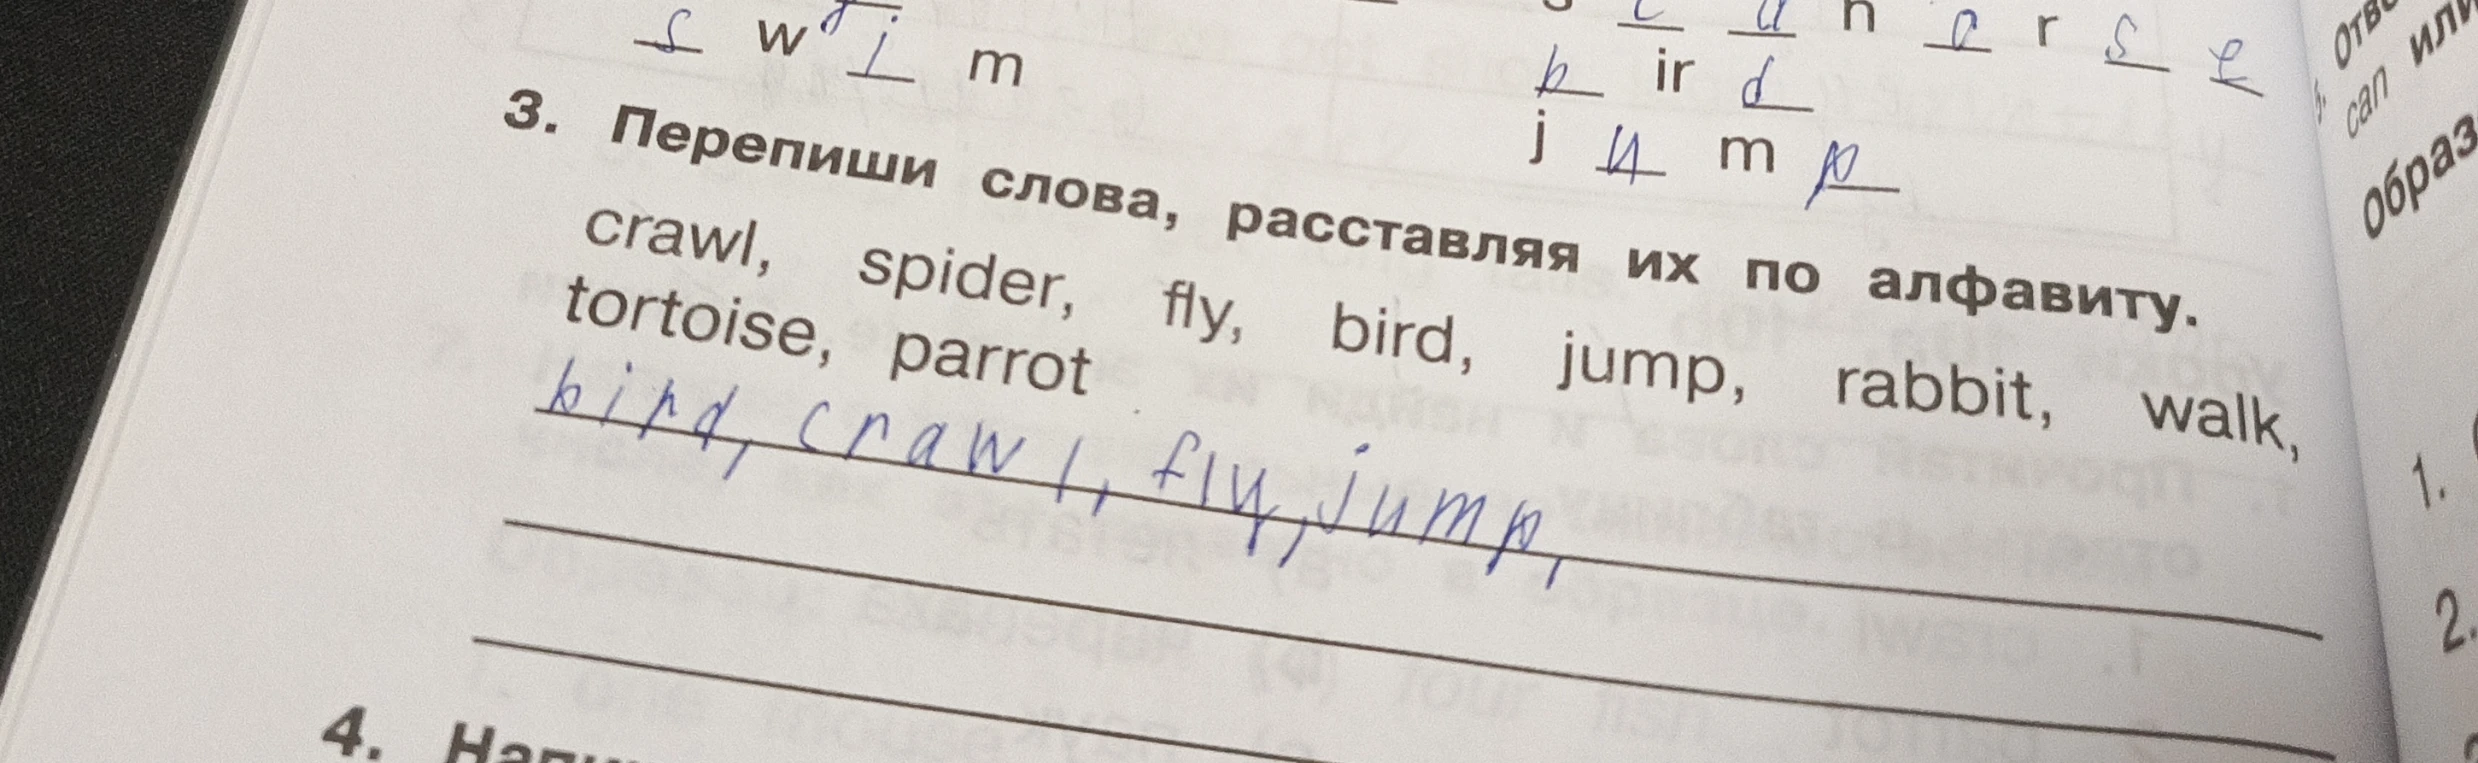 s w i m
n a r s e
b ir d
j u m p
3. Перепиши слова, расставляя их по алфавиту.
crawl, spider, fly, bird, jump, rabbit, walk,
tortoise, parrot
bird, crawl, fly, jump,
4.
can или
Образ
1.
2.